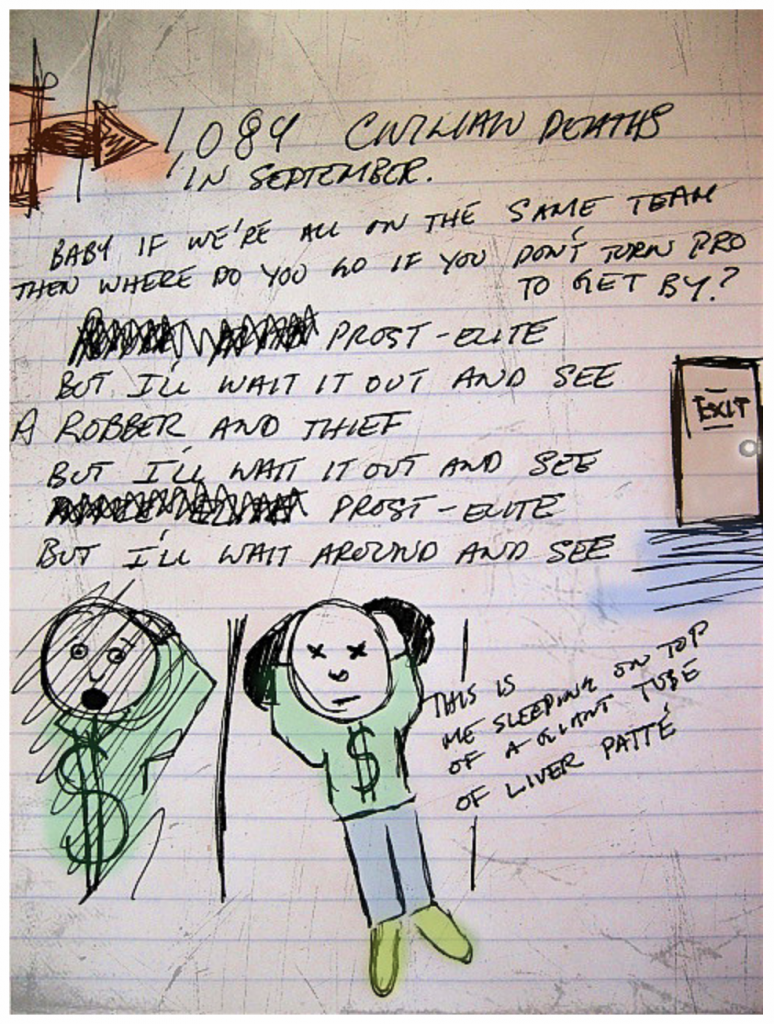 1089 CIVILIAN DEATHS
IN SEPTEMBER.
BABY IF WE'RE ALL ON THE SAME TEAM
THEN WHERE DO YOU GO IF YOU DON'T TURN PRO
TO GET BY?
PROST-ELITE
BUT I'LL WAIT IT OUT AND SEE
A ROBBER AND THIEF
BUT I'LL WAIT IT OUT AND SEE
PROST-ELITE
BUT I'LL WAIT AROUND AND SEE
EXIT
$
$
THIS IS
ME SLEEPING ON TOP
OF A GIANT TUBE
OF LIVER PATTÉ